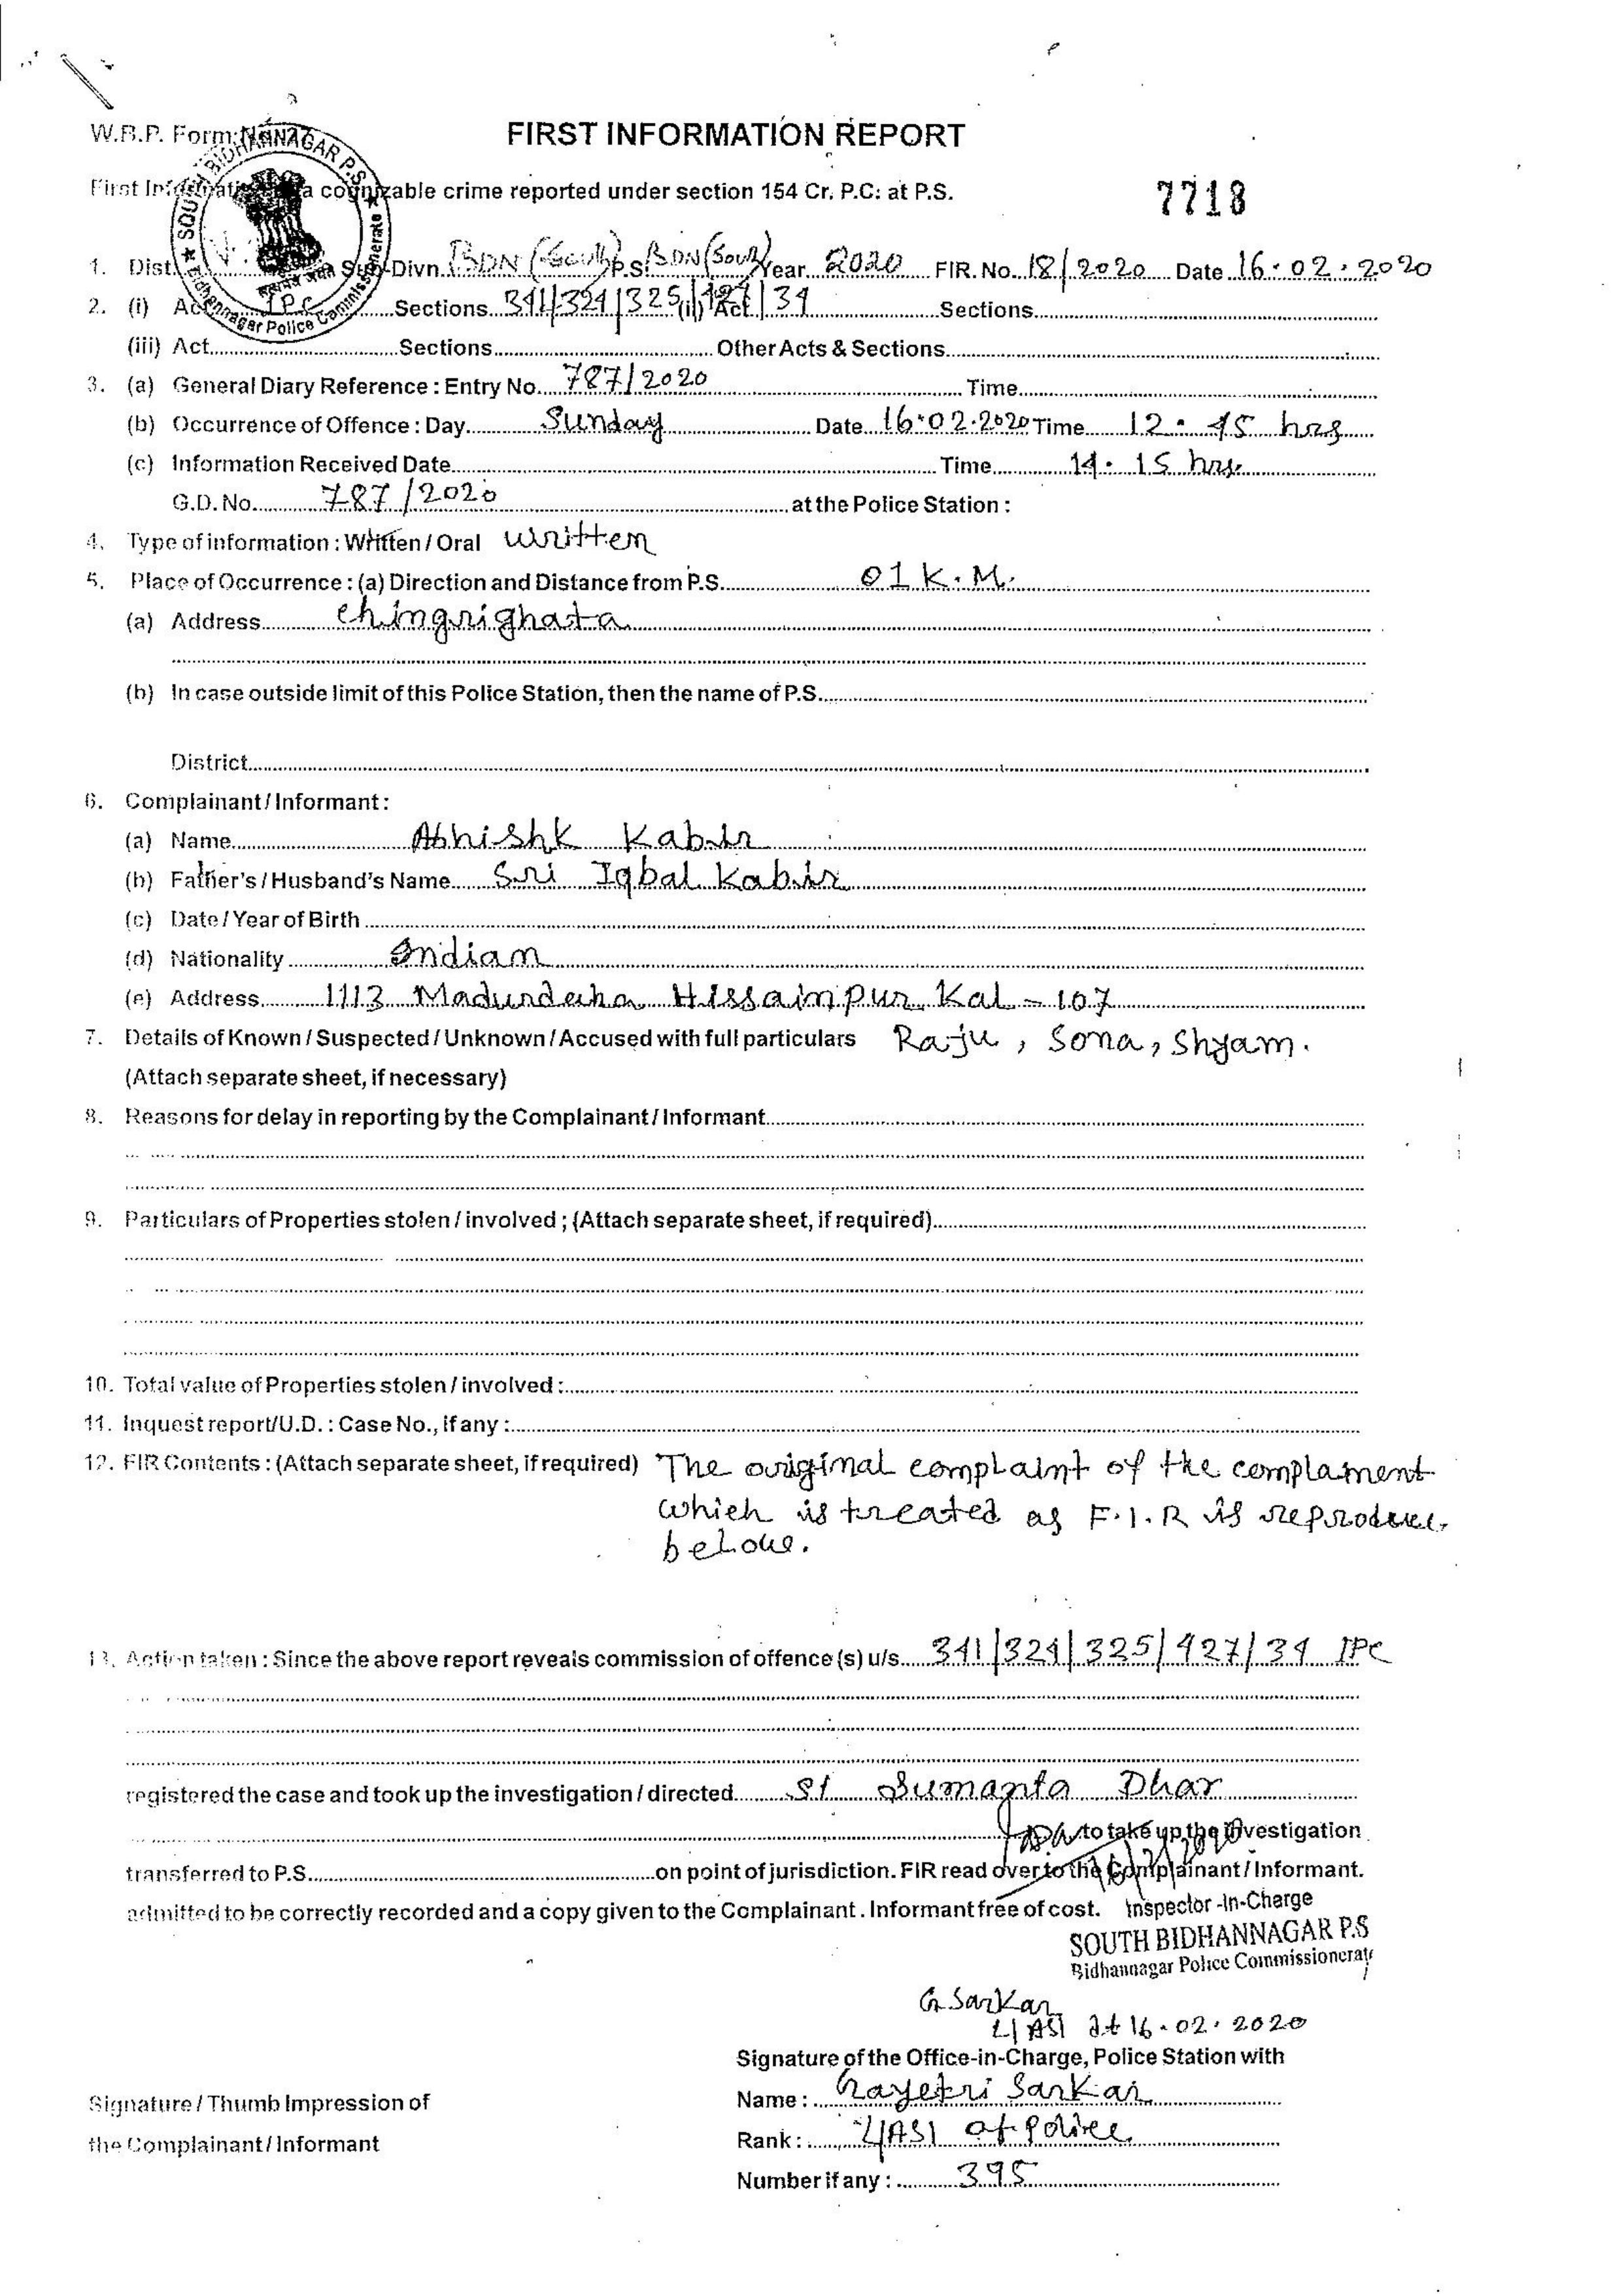 W.B.P. Form No. 27
FIRST INFORMATION REPORT
First Information of a cognizable crime reported under section 154 Cr. P.C: at P.S.
7718
SOUTH BIDHANNAGAR P.S.
Bidhannagar Police Commissionerate
1. Dist. Sub-Divn. BDN (South) P.S. BDN (South) Year 2020 FIR. No. 18/2020 Date 16.02.2020
2. (i) Act IPC Sections 341/324/325/427/34 (ii) Act Sections
(iii) Act Sections Other Acts & Sections
3. (a) General Diary Reference : Entry No. 787/2020 Time
(b) Occurrence of Offence : Day Sunday Date 16.02.2020 Time 12.45 hrs
(c) Information Received Date Time 14.15 hrs
G.D. No. 787/2020 at the Police Station :
4. Type of information : Written / Oral Written
5. Place of Occurrence : (a) Direction and Distance from P.S. 01 K.M.
(a) Address Chingrighata
(b) In case outside limit of this Police Station, then the name of P.S.
District
6. Complainant / Informant :
(a) Name Abhishk Kabir
(b) Father's / Husband's Name Sri Iqbal Kabir
(c) Date / Year of Birth
(d) Nationality Indian
(e) Address 1113 Madurdaha Hissainpur Kal - 107
7. Details of Known / Suspected / Unknown / Accused with full particulars Raju, Sona, Shyam.
(Attach separate sheet, if necessary)
8. Reasons for delay in reporting by the Complainant / Informant
9. Particulars of Properties stolen / involved ; (Attach separate sheet, if required)
10. Total value of Properties stolen / involved :
11. Inquest report/U.D. : Case No., if any :
12. FIR Contents : (Attach separate sheet, if required) The original complaint of the complainent
which is treated as F.I.R is reproduce
belowe.
13. Action taken : Since the above report reveals commission of offence (s) u/s 341/324/325/427/34 IPC
registered the case and took up the investigation / directed SI Sumanta Dhar
to take up the investigation
transferred to P.S. on point of jurisdiction. FIR read over to the Complainant / Informant.
admitted to be correctly recorded and a copy given to the Complainant. Informant free of cost.
Inspector-In-Charge
SOUTH BIDHANNAGAR P.S
Bidhannagar Police Commissionerate
G Sarkar
L/ASI dt 16.02.2020
Signature of the Office-in-Charge, Police Station with
Name : Gayetri Sarkar
Signature / Thumb Impression of
Rank : L/ASI of Police
the Complainant / Informant
Number if any : 395